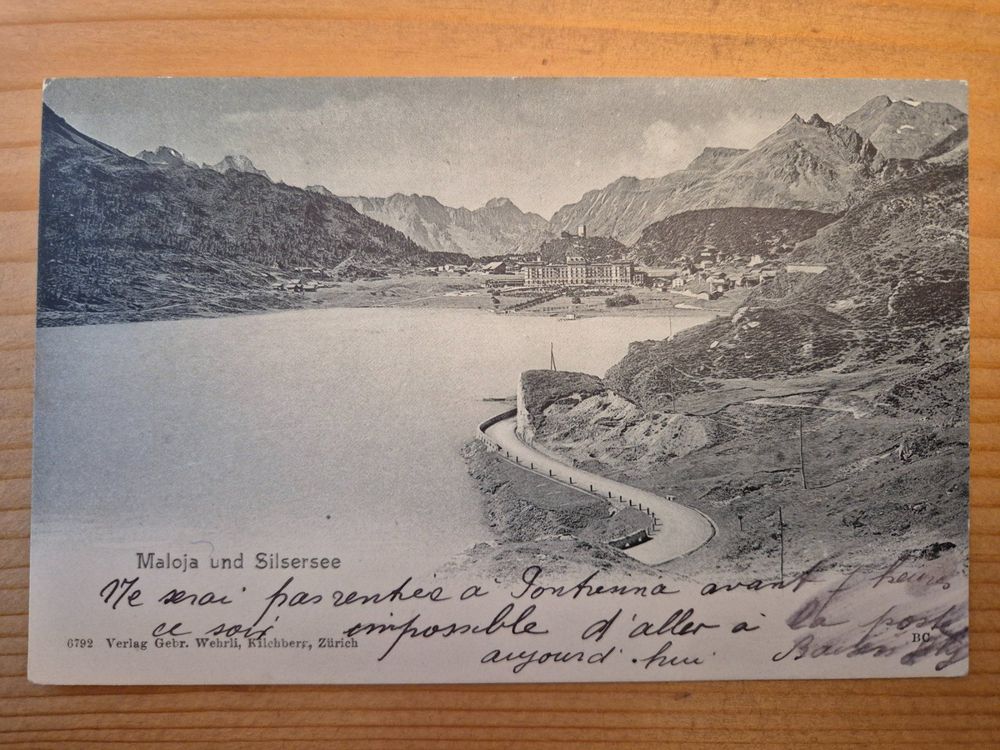 Maloja und Silsersee
Ne serai pas rentrée à Pontresina avant 7 heures
ce soir impossible d'aller à la poste
6792 Verlag Gebr. Wehrli, Kilchberg, Zürich
BC
aujourd'hui